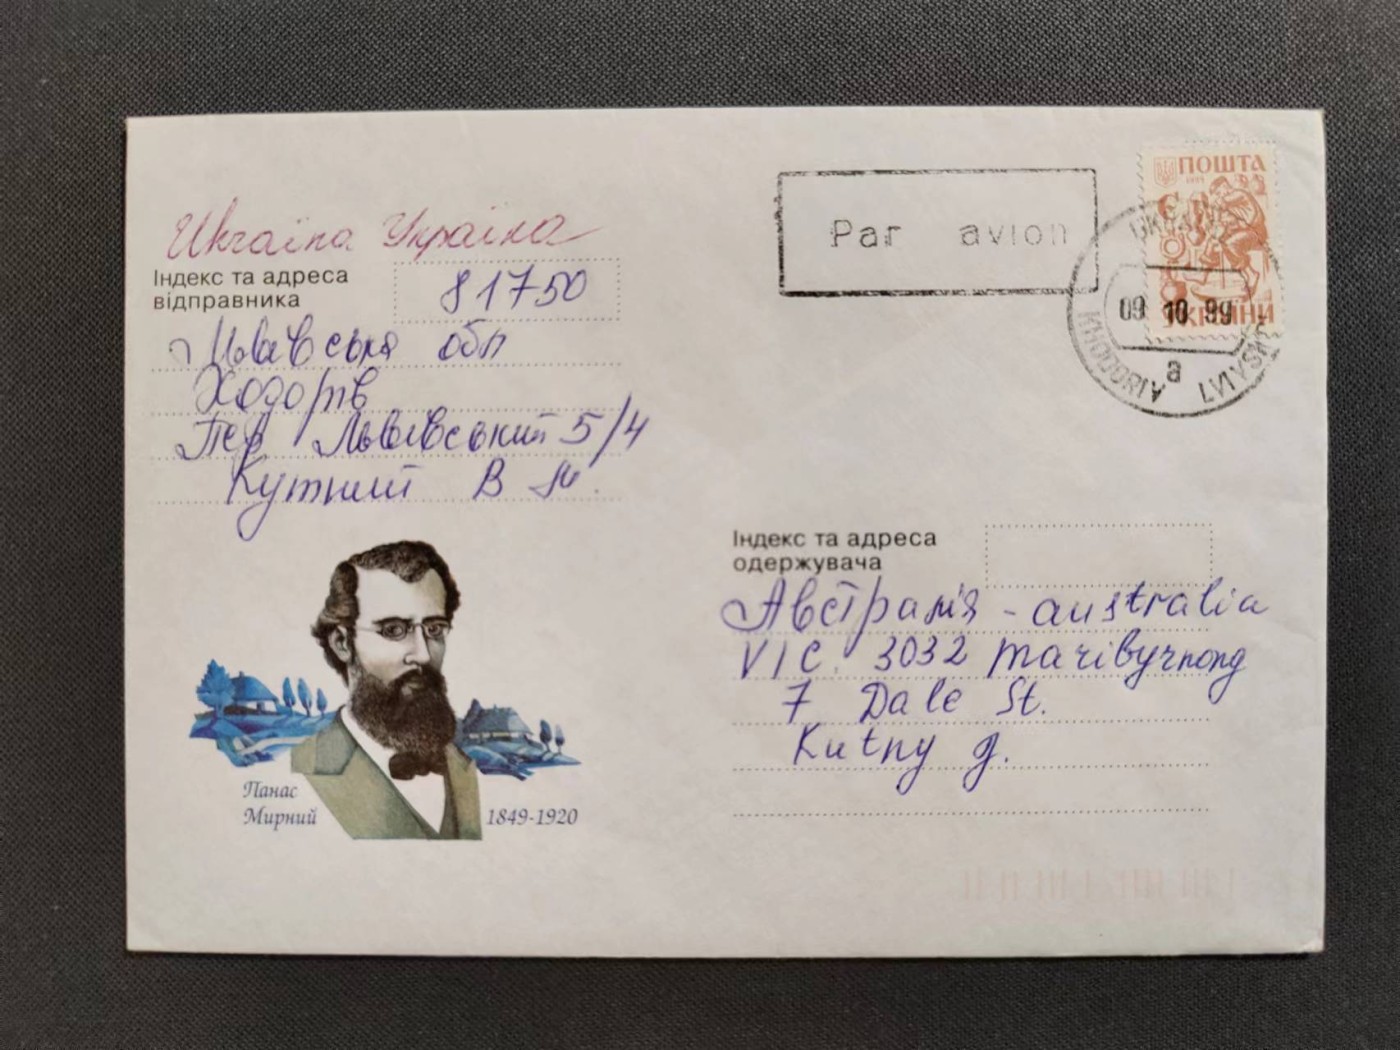 Ukraїna Україна
Індекс та адреса
відправника
81750
Львівська обл
Ходорів
Пер Львівський 5/4
Кутний В М.
Par avion
ПОШТА
УКРАЇНИ
UKRAINE
09 10 99
KHODORIV a LVIVSKA
Індекс та адреса
одержувача
Австралія - australia
VIC. 3032 maribyrnong
7 Dale St.
Kutny g.
Панас
Мирний 1849-1920